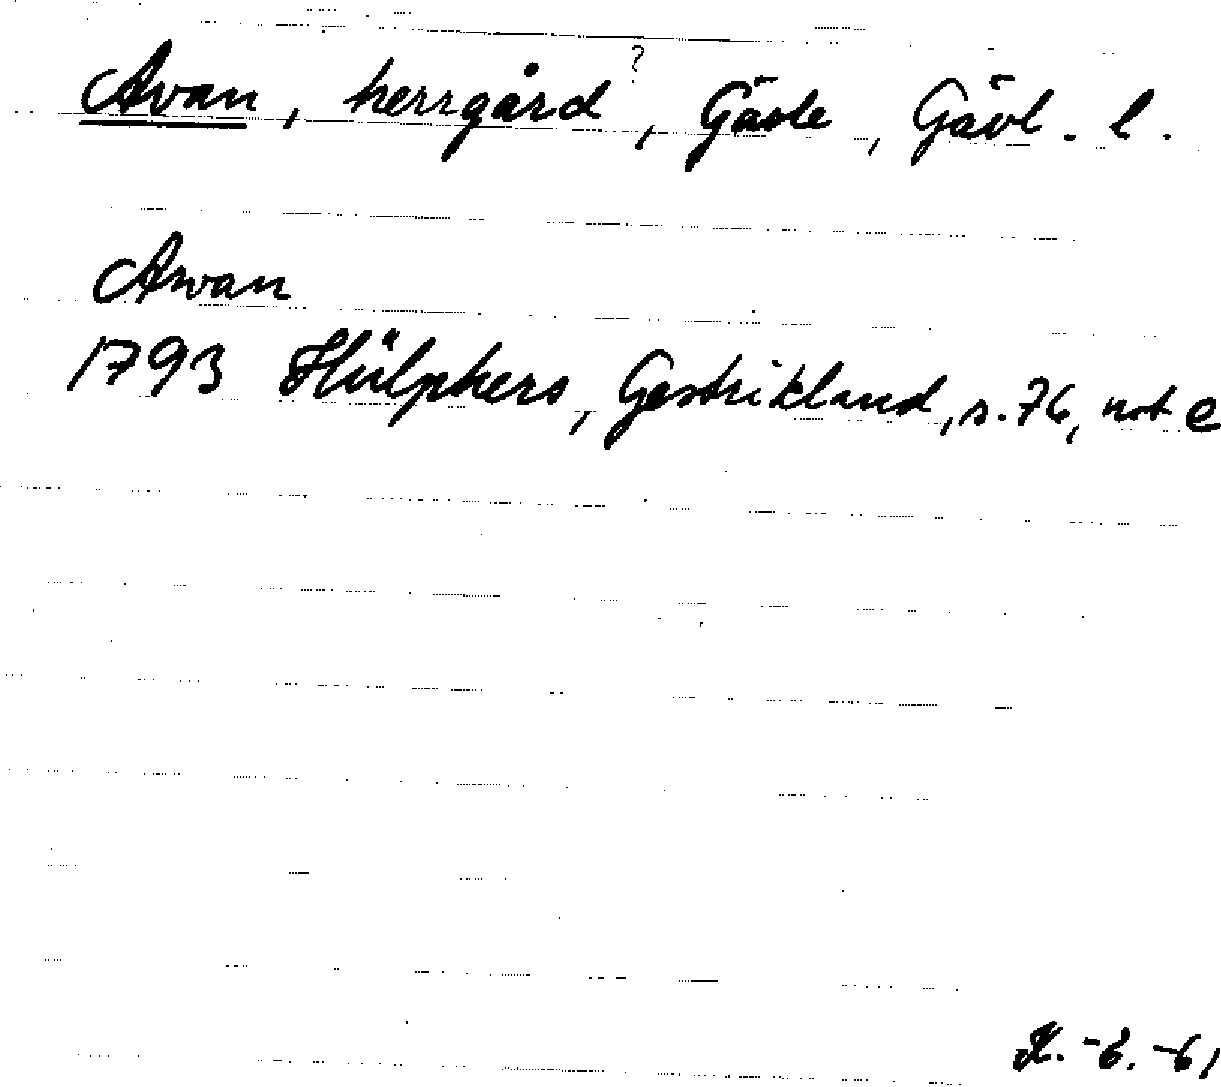 Avan, herrgård?, Gävle, Gävl. l.
Awan
1793 Hülphers, Gestrikland, s. 76, not e